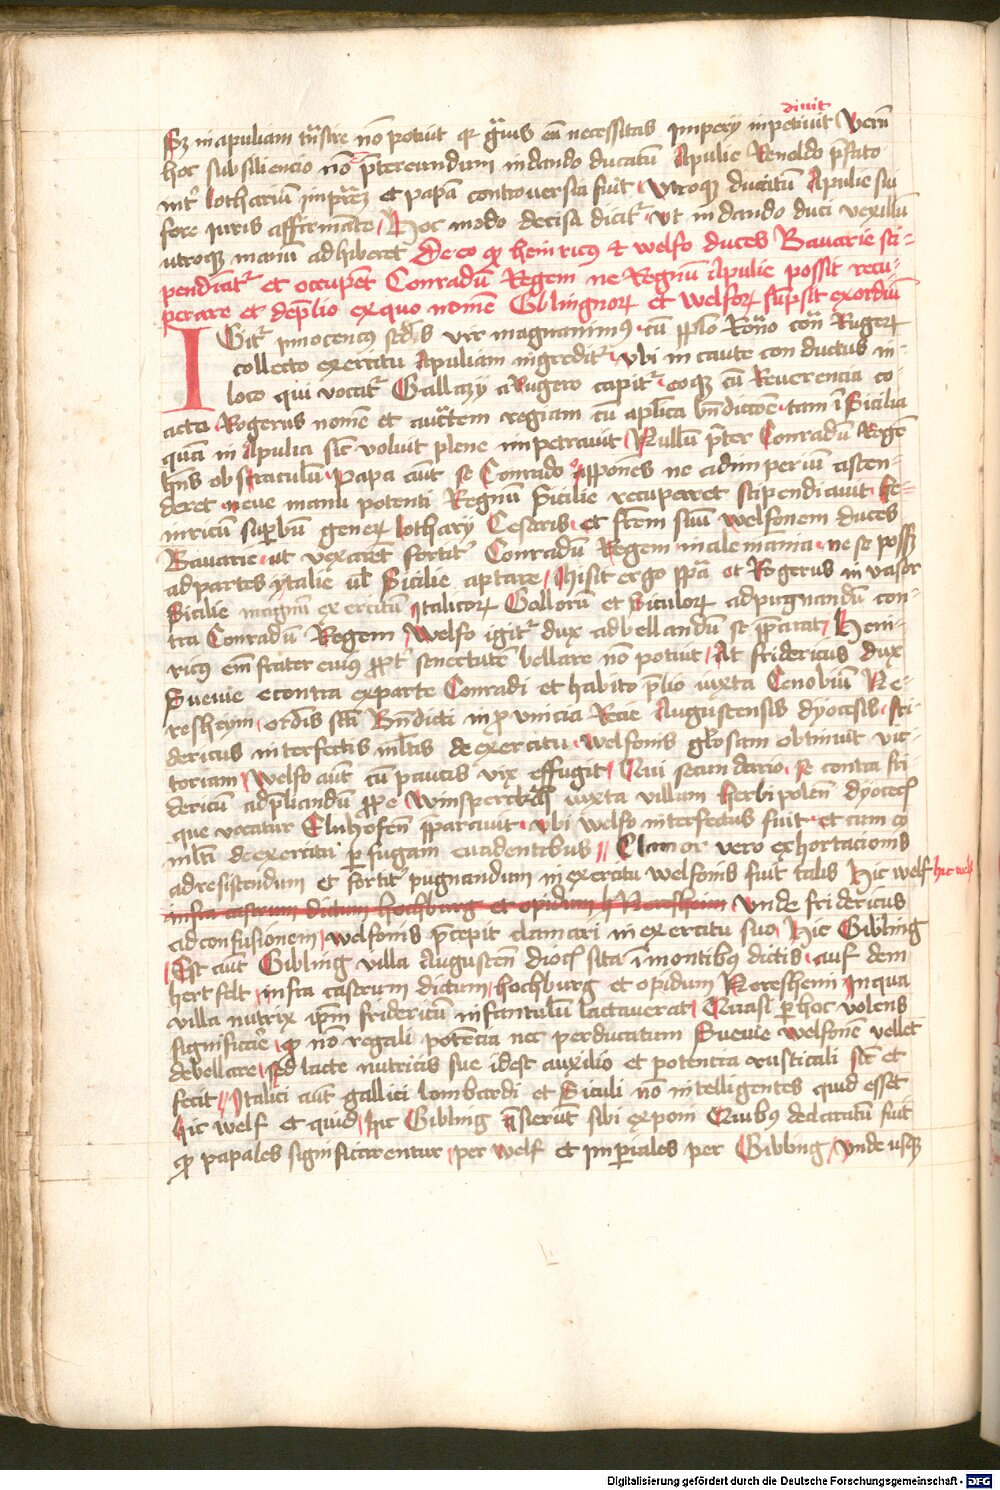 divit
Sz in apuliam tn̄sire nō potuit qr ḡuis eū necessitas Imperij inpetiuit Verū
hoc sub silencio nō p̄tereundum in dando ducatū Apulie Renoldo p̄fato
int̾ lothariū impr̄ez et papā controuersia fuit utroqꝫ ducatū Apulie sui
fore iuris affirmāte Hoc modo decisa dicit̾ vt in dando duci vexillū
utroqꝫ manū adhiberet De eo qꝫ heinricus et welfo duces Bauarie sti-
pendiāt̾ et occupēt Conradū Regem ne Regnū Apulie possit recu-
perare et de p̄lio ex quo nomē Gblingnoꝝ et welfoꝝ sūpsit exordiū
IGit̾ innocencius scd̄s vir magnanimus cū pplo Rōno cōn̄ Rugerꝫ
collecto exercitu Apuliam ingredit̾ vbi in caute con ductus in
loco qui vocat̾ Gallazij a Rugero capit̾ eoqꝫ cū Reuerencia co
acto Rogerus nomē et auctem regiam cū aplīca bn̄dictōe tam ī Sicilia
quā in Apulia sic̄ voluit plene impetrauit Nullū p̄ter Conradū Regē
hn̄s obstaculū Papa aūt se Conrado opponēs ne ad imperiū ascen-
deret neue manu potenti Regnū Sicilie recuperet stipendiauit he-
inricū supbū generꝫ lotharij Cesaris et frēm suū welfonem duces
Bauarie ut vexaret fortit̾ Conradū Regem in alemania ne se possꝫ
ad partes ytalie ul̄ Sicilie aptare Misit ergo ppā et Rogerus in vasor
Sicilie magnū exercitum Italicoꝝ Gallorū et Siculoꝝ ad pugnandū con-
tra Conradū Regem Welfo igit̾ dux ad bellandū se pparat Hein-
ricus em̄ frater eius ppt̾ senectutē bellare nō potuit At fridericus dux
Sueuie econtra ex parte Conradi et habito p̄lio iuxta Cenobiū Ne-
resheym ordīs sct̄i Bn̄dicti in puincia Recie Augustensis dyocesis fri-
dericus interfectis ml̄tis de exercitu welfonis gl̄osam obtinuit vic-
toriam Welfo aūt cū paucis vix effugit Qui secundario se contra fri-
dericū ad p̄liandū ppe Winsperck iuxta villum herbipolen̄ dyoces̄
que vocatur Elnhofen̄ pparauit vbi welfo interfectus fuit et cum eo
ml̄ti de exercitu p fugam euidentibus Clamor vero exhortacionis
ad resistendum et fortit̾ pugnandum in exercitu welfonis fuit talis Hic welf hic welf
infra castrum dictum hochburg et opidum Neresheim Vnde fridericus
ad confusionem welfonis p̄cepit clamari in exercitu suo Hic Gibling
Est aūt Gibling villa Augusten̄ dioc̄ sita ī montibus dictis auf dem
hertfelt infra castrum dictum hochburg et opidum Neresheim In qua
villa nutrix ip̄m fridericū infantulū lactauerat Quasi p hoc volens
significare qꝫ nō regali potēcia nec per ducatum Sueuie welfonē vellet
debellare sed lacte nutricis sue idest auxilio et potencia rusticali sic̄ et
fecit Italici aūt gallici lombardi et Siculi nō intelligentes quid esset
hic welf et quid hic Gibling q̄sierūt sibi exponi Quibus declaratū fuit
qꝫ papales significarentur per welf et imperiales per Gibling Vnde usqꝫ
Digitalisierung gefördert durch die Deutsche Forschungsgemeinschaft - DFG